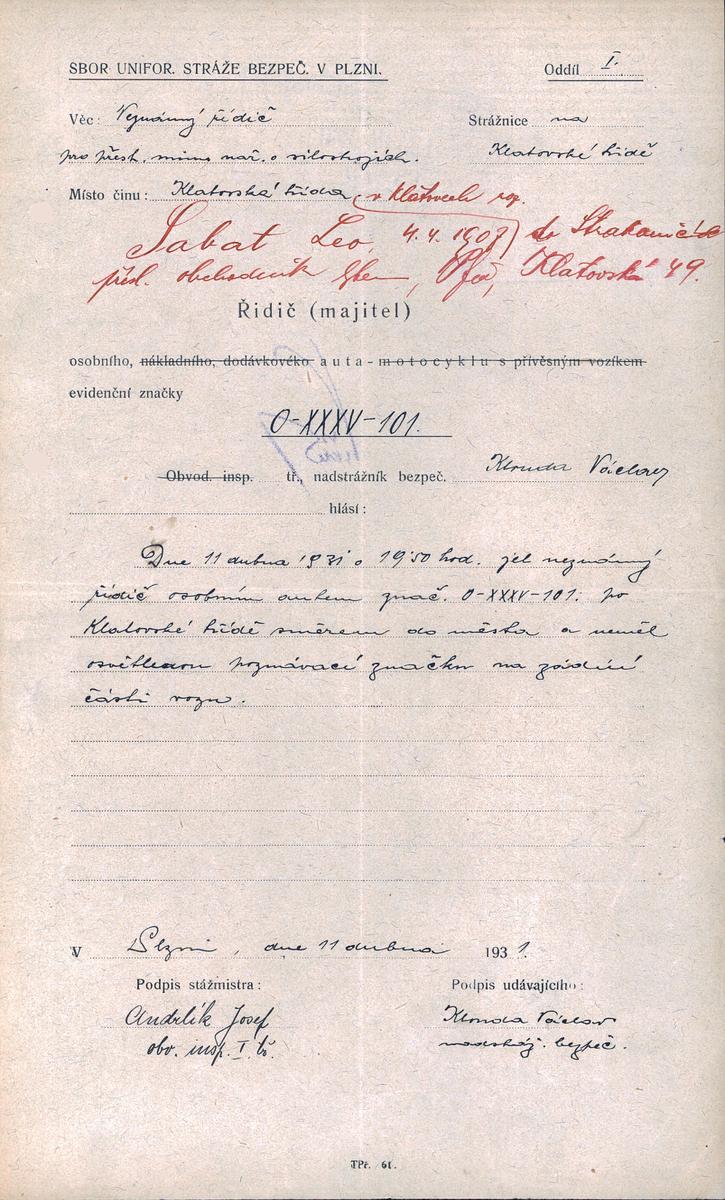 SBOR UNIFOR. STRÁŽE BEZPEČ. V PLZNI. Oddíl I.
Věc: Neznámý řidič Strážnice na
pro přest. min. nař. o silostrojích. Klatovské třídě
Místo činu: Klatovská třída. v Klatovech
Sabat Leo, 4.4. 1907
obchodník Klatovská 49.
Řidič (majitel)
osobního, nákladního, dodávkovéko auta - motocyklu s přívěsným vozíkem
evidenční značky
O-XXXV-101.
Obvod. insp. tř., nadstrážník bezpeč. Klouda Václav
hlásí:
Dne 11 dubna 1931 o 19'50 hod. jel neznámý
řidič osobním autem znač. O-XXXV-101. po
Klatovské třídě směrem do města a neměl
osvětlenou poznávací značku na zádní
části vozu.
V Plzni, dne 11 dubna 1931.
Podpis stážmistra: Podpis udávajícího:
Andrlík Josef Klouda Václav
obv. insp. I. tř. nadstráž. bezpeč.
TPř. 61.